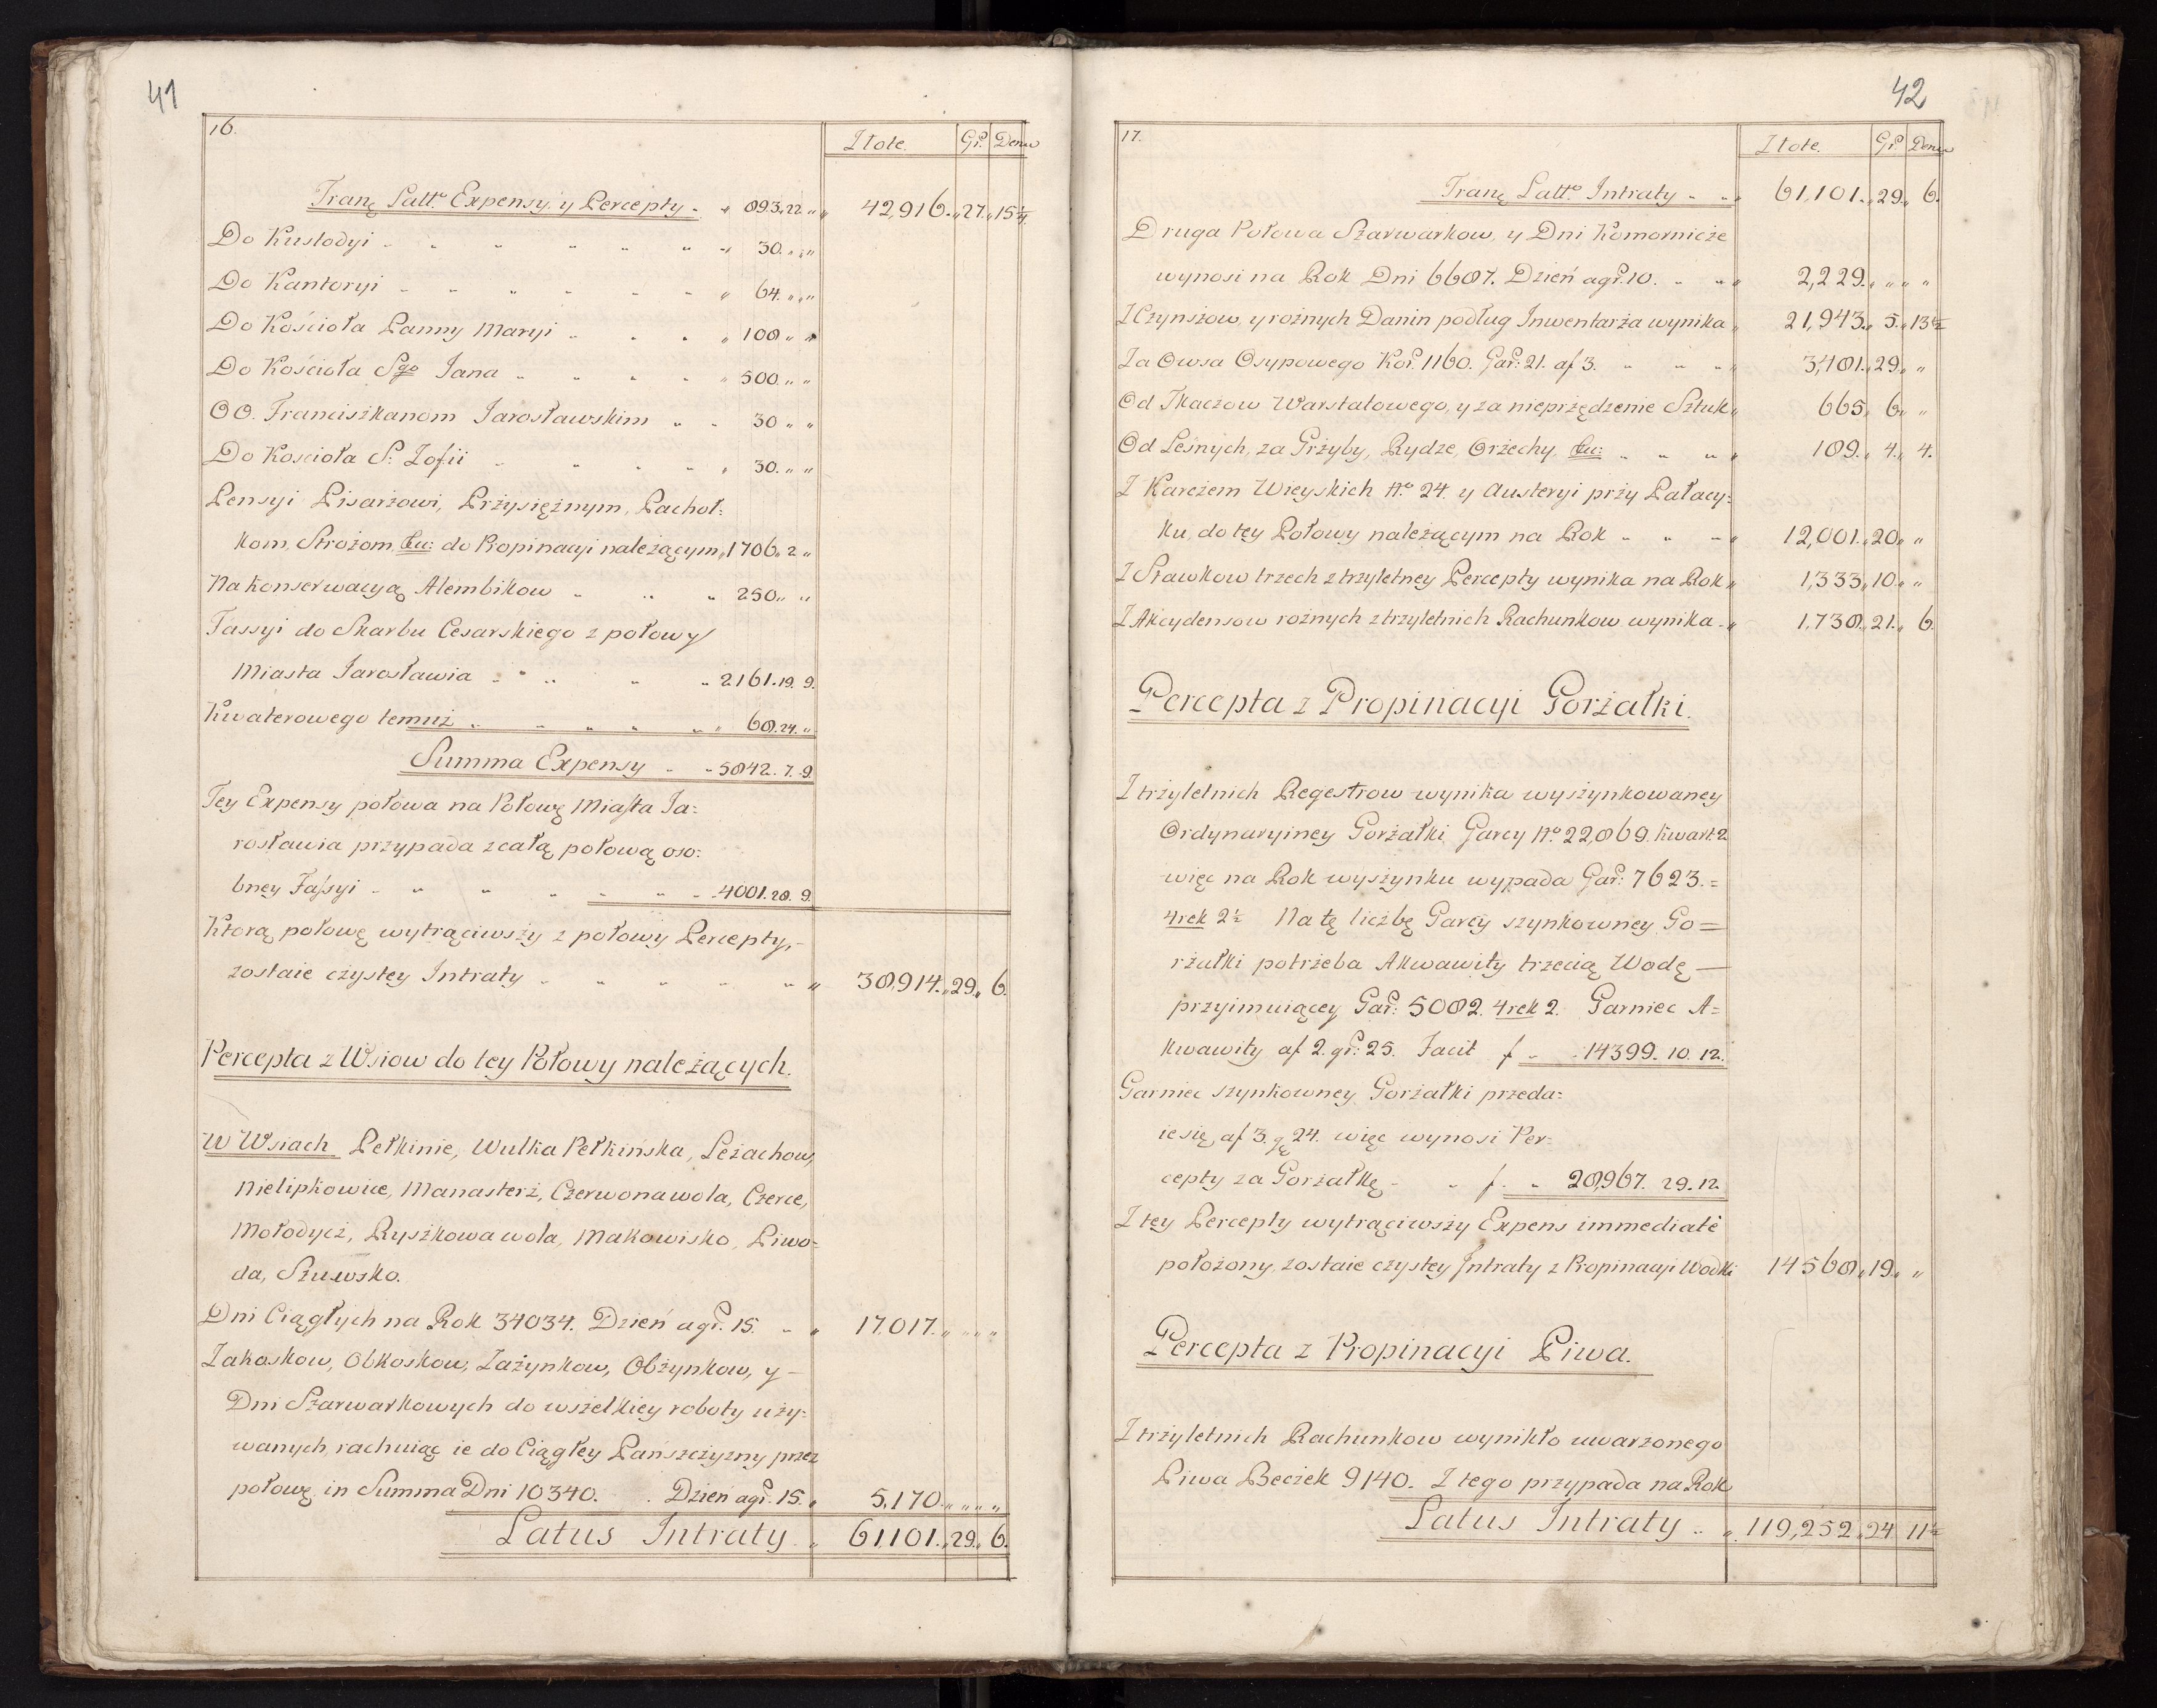 41
16.
Złote. Gr. Denar
Tranz Latt.º Expensy, y Percepty „ 893„22„ „ 42,916„27„15¼
Do Kustodyi „ 30„ „
Do Kantoryi „ 64„ „
Do Kościoła Panny Maryi „ 108„ „
Do Kościoła Sgo Jana „ 500„ „
OO. Franciszkanom Jarosławskim „ 30„ „
Do Kościoła S: Zofii „ 30„ „
Pensyi Pisarżowi, Prżysiężnym, Pachoł:
kom, Strożom, &c: do Propinacyi należącym „ 1706„2„
Na konserwacyą Alembikow „ 250„ „
Fassyi do Skarbu Cesarskiego z połowy
Miasta Jarosławia „ 2161.19.9.
Kwaterowego temuż „ 68.24.„
Summa Expensy „ 5842.7.9
Tey Expensy połowa na Połowę Miasta Ja:
rosławia przypada z całą połową oso:
bney Fassyi „ 4001.28.9.
Ktorą połowę wytrąciwszy z połowy Percepty,
zostaie czystey Intraty „ 38,914„29„6.
Percepta z Wsiow do tey Połowy należących.
W Wsiach Pełkinie, Wulka Pełkińska, Leżachow,
Nielipkowice, Manasterż, Czerwonawola, Czerce,
Mołodycż, Ryszkowa wola, Makowisko, Piwo:
da, Szuwsko.
Dni Ciągłych na Rok 34034. Dzień agr. 15. „ 17.017„ „ „
Zakoskow, Obkoskow, Zażynkow, Obżynkow, y
Dni Szarwarkowych do wszelkiey roboty uży:
wanych, rachuiąc ie do Ciągłey Pańszczyzny przez
połowę in Summa Dni 10340. Dzień agr. 15. „ 5,170„ „ „
Latus Intraty „ 61,101„29„6.
42
17.
Złote. Gr. Denar
Tranz Latt.º Intraty „ 61,101„29„6.
Druga Połowa Szarwarkow, y Dni Komornicze
wynosi na Rok Dni 6687. Dzień agr. 10. „ 2,229„ „ „
Z Czynszow, y rożnych Danin podług Inwentarża wynika „ 21,943„5„13½
Za Owsa Osypowego Kor. 1160. Gar: 21. af 3. „ 3,481„29„ „
Od Tkaczow Warstatowego, y za nieprzędzenie Sztuk „ 665„6„ „
Od Leśnych, za Grżyby, Rydze, Orżechy &c: „ 189„4„4.
Z Karczem Wieyskich Nº 24. y Austeryi przy Pałacy:
ku, do tey Połowy należącym na Rok „ 12,001„20„ „
Z Stawkow trzech z trzyletney Percepty wynika na Rok „ 1,333„10„ „
Z Akcydensow rożnych z trzyletnich Rachunkow wynika „ 1,738„21„6.
Percepta z Propinacyi Gorżałki.
Z trżyletnich Regestrow wynika wyszynkowaney
Ordynaryiney Gorżałki, Garcy Nº 22,869. kwart: 2
więc na Rok wyszynku wypada Gar: 7623.=
4rek 2½ Na tę liczbę Garcy szynkowney Go=
rżałki potrżeba Akwawity trzecią Wodę —
przyimuiącey, Gar: 5082. 4rek 2. Garniec A=
kwawity af 2. gr: 25. Facit f „ 14399.10.12.
Garniec szynkowney Gorżałki przeda:
ie się, af 3. g 24. więc wynosi Per:
cepty za Gorżałkę „ f. „ 28,967. 29.12.
Z tey Percepty wytrąciwszy Expens immediatè
położony, zostaie czystey Intraty z Propinacyi Wodki 14568„19„ „
Percepta z Propinacyi Piwa.
Z trżyletnich Rachunkow wynikło uwarzonego
Piwa Beczek 9140. Z tego przypada na Rok
Latus Intraty „ 119,252„24 11½